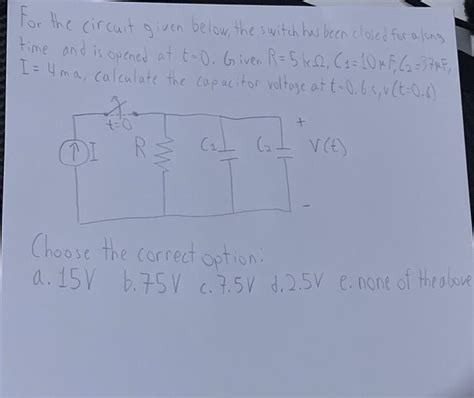 For the circuit given below, the switch has been closed for a long
time and is opened at t=0. Given R=5kΩ, C1=10μF, C2=37μF,
I=4ma, calculate the capacitor voltage at t=0.6s, v(t=0.6)
t=0
I
R
C1
C2
+
V(t)
-
Choose the correct option:
a. 15V b. 75V c. 7.5V d. 2.5V e. none of the above